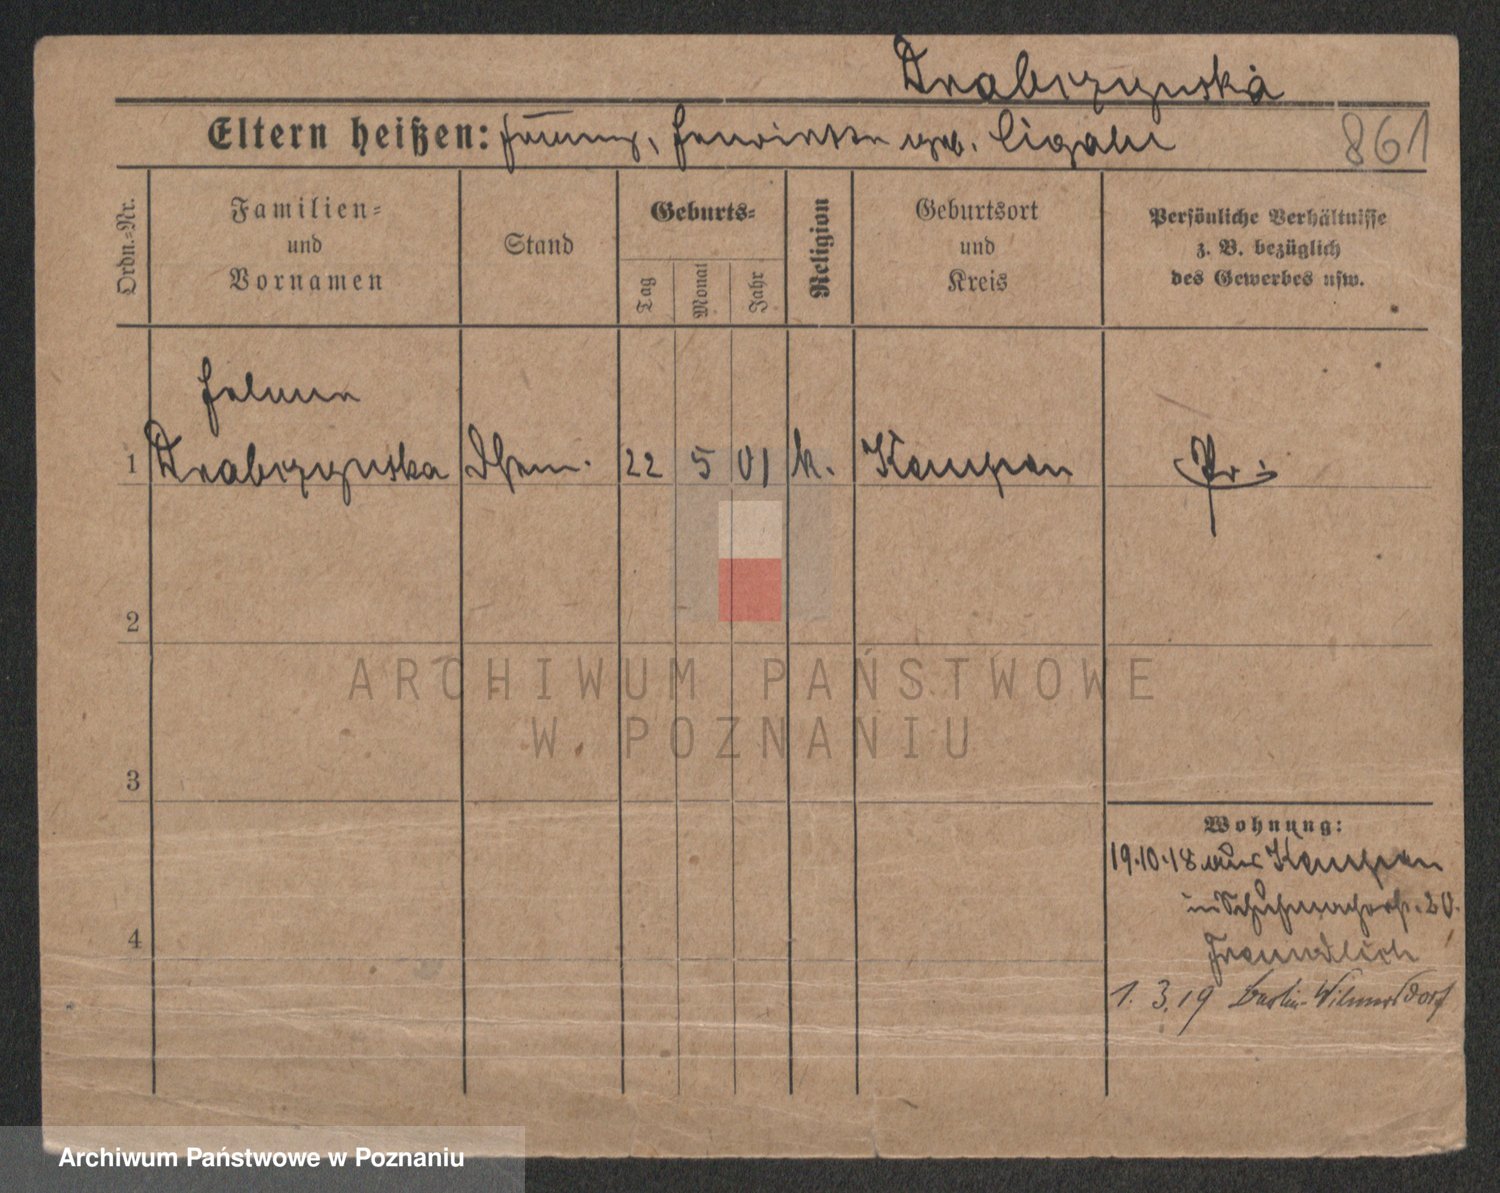 Drabczynska
Eltern heißen: Franz, Henriette geb. Cigale
861
Ordn.-Nr.
Familien-
und
Vornamen
Stand
Geburts-
Tag
Monat
Jahr
Religion
Geburtsort
und
Kreis
Persönliche Verhältnisse
z. B. bezüglich
des Gewerbes usw.
Helene
1 Drabczynska 22 5 01 k. Kempen Pr.
2
3
4
Wohnung:
19.10.18 aus Kempen
in Schuhmacherstr. 20.
Freundlich
1.3.19 Berlin-Wilmersdorf
ARCHIWUM PAŃSTWOWE
W POZNANIU
Archiwum Państwowe w Poznaniu